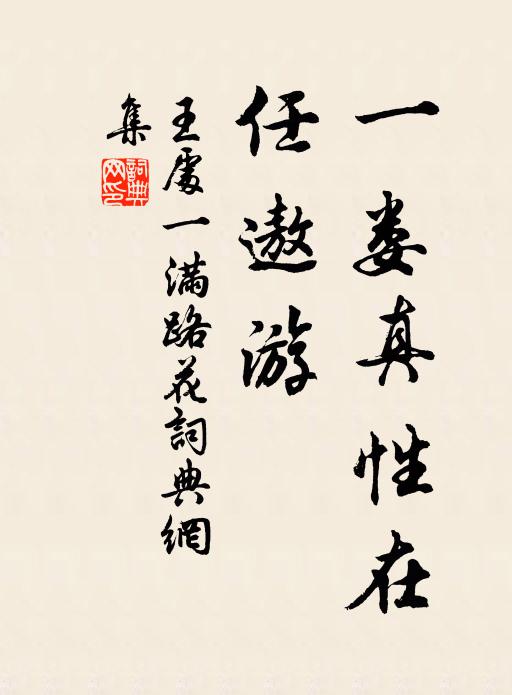 一娄真性在
任遨游
王處一滿路花詞典網
集
詞典網印